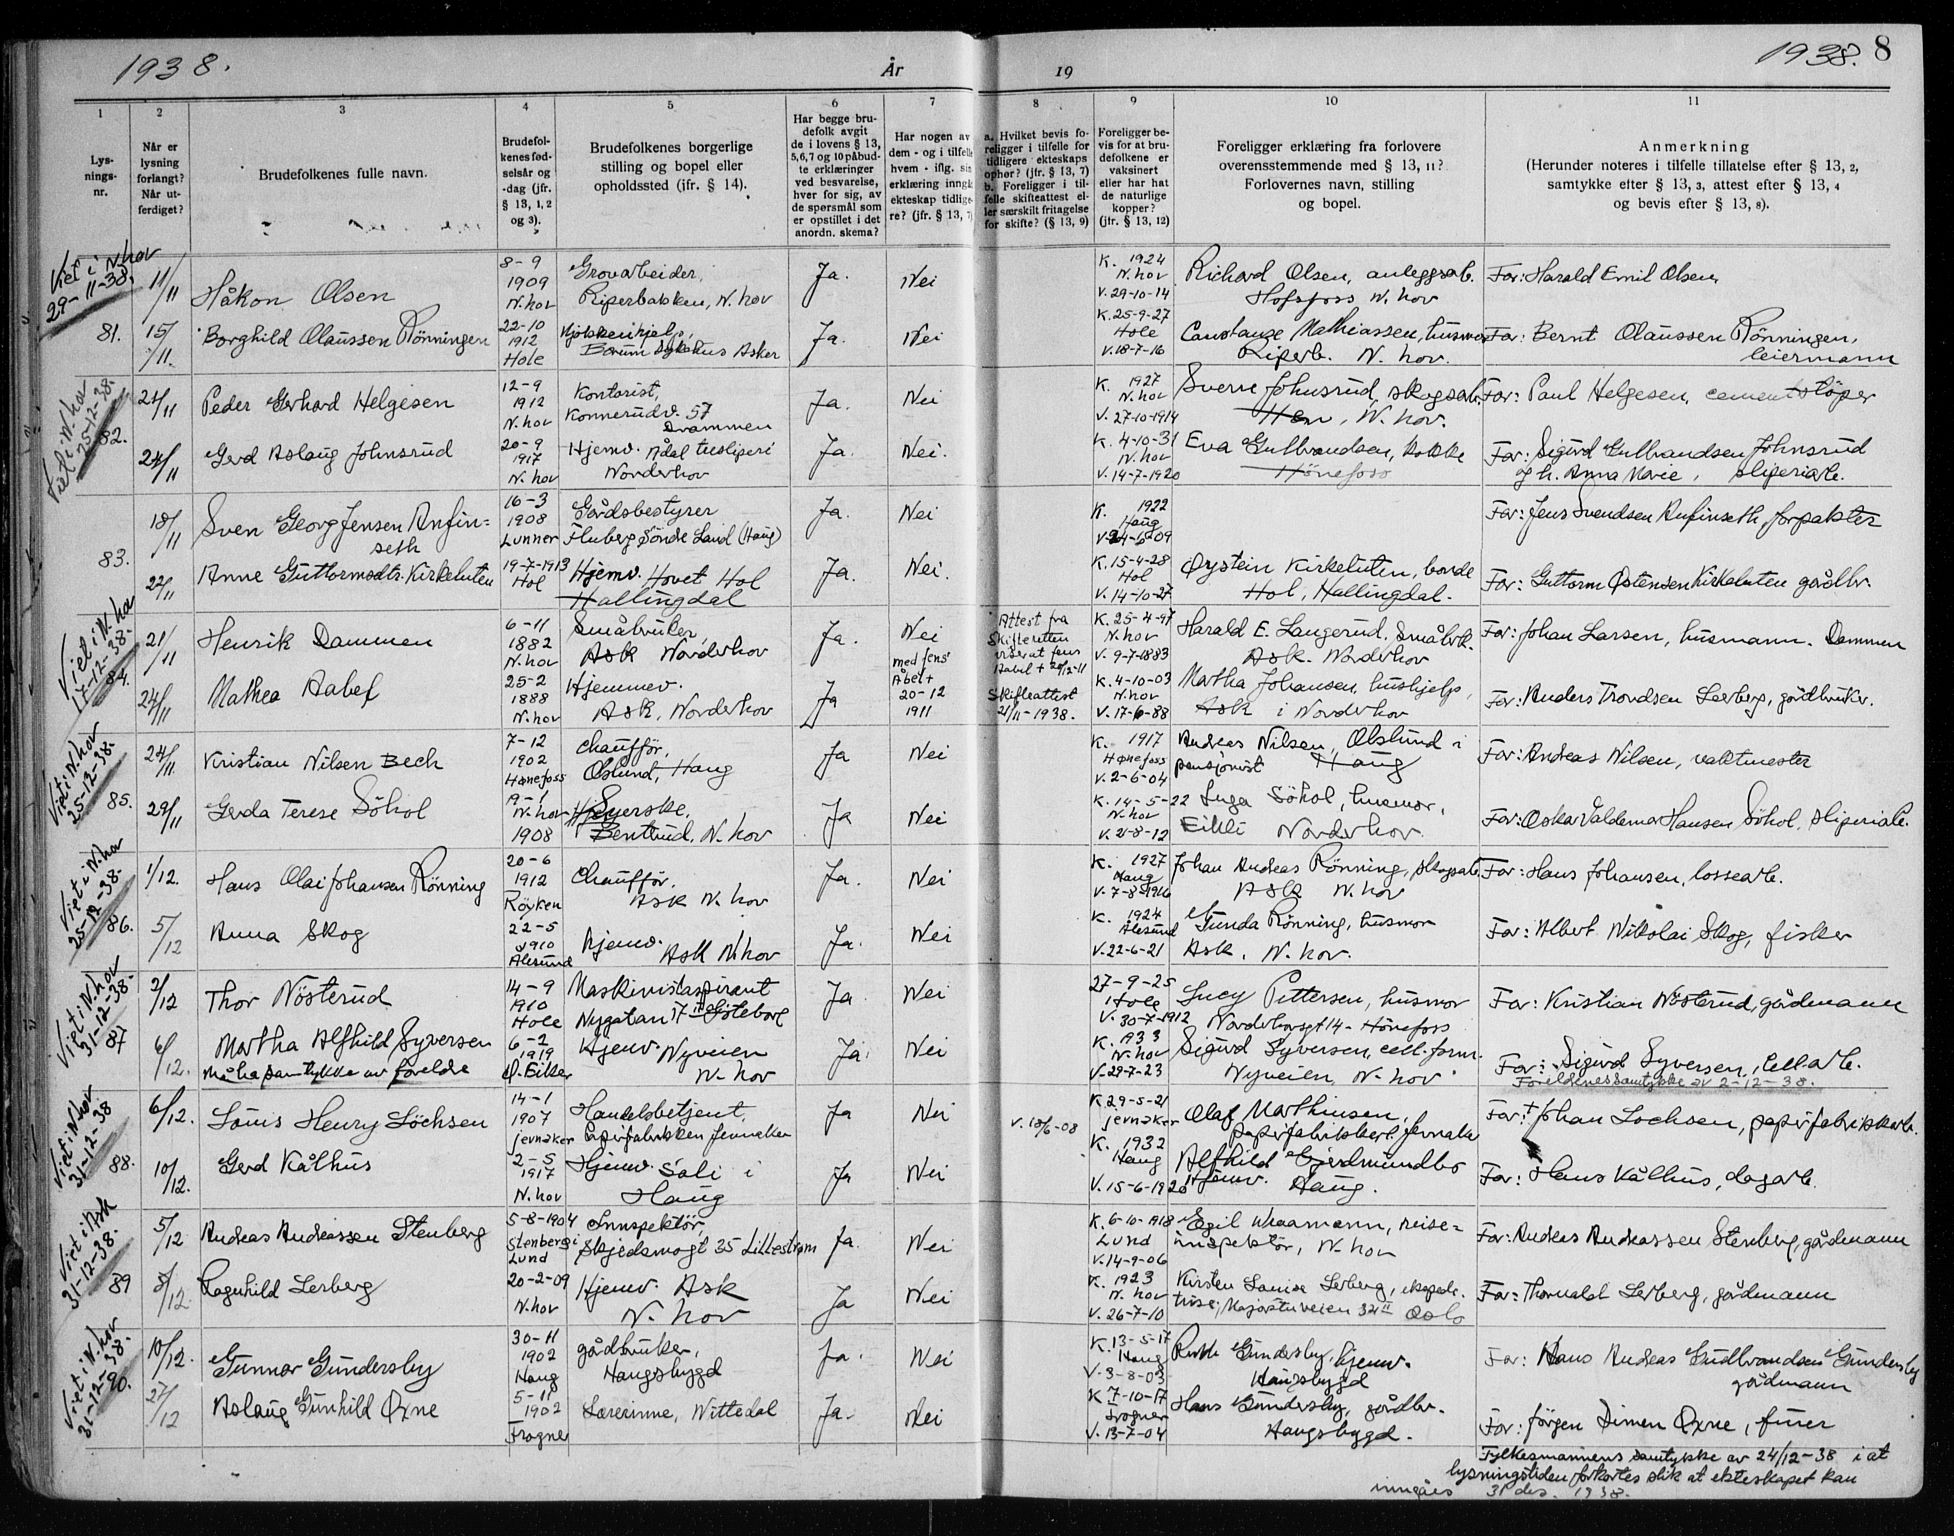 1938.
År
19
1938. 8
1
2
3
4
5
6
7
8
9
10
11
Lys-
nings-
nr.
Når er
lysning
forlangt?
Når ut-
ferdiget?
Brudefolkenes fulle navn.
Brudefol-
kenes fød-
selsår og
-dag (jfr.
§ 13, 1, 2
og 3).
Brudefolkenes borgerlige
stilling og bopel eller
opholdssted (jfr. § 14).
Har begge bru-
defolk avgit
de i lovens § 13,
5,6,7 og 10 påbud-
te erklæringer
ved besvarelse,
hver for sig, av
de spørsmål som
er opstillet i det
anordn. skema?
Har nogen av
dem - og i tilfelle
hvem - iflg. sin
erklæring inngå
ekteskap tidlige-
re? (jfr. § 13, 7)
a. Hvilket bevis fo-
religger i tilfelle for
tidligere ekteskaps
ophør? (jfr. § 13, 7)
b. Foreligger i til-
felle skifteattest el-
ler særskilt fritagelse
for skifte? (§ 13, 9)
Foreligger be-
vis for at bru-
defolkene er
vaksinert
eller har hat
de naturlige
kopper?
(jfr. § 13, 12)
Foreligger erklæring fra forlovere
overensstemmende med § 13, 11?
Forlovernes navn, stilling
og bopel.
Anmerkning
(Herunder noteres i tilfelle tillatelse efter § 13, 2,
samtykke efter § 13, 3, attest efter § 13, 4
og bevis efter § 13, 8).
Viet i N.hov
29-11-38.
81.
11/11
Håkon Olsen
8-9
1909
N.hov
Grovarbeider,
Riperbakken, N.hov
Ja.
Nei
K. 1924
N.hov
V. 29-10-14
Richard Olsen, anleggsarb.
Hofsfoss N.hov
Far: Harald Emil Olsen,
15/11.
Borghild Olaussen Rönningen
22-10
1912
Hole
Kjökkenhjelp,
Bærum Sykehus Asker
Ja.
Nei
K. 25-9-27
Hole
V. 18-7-16
Constanze Mathiassen, husmor
Riperb. N.hov.
Far: Bernt Olaussen Rönningen,
leiermann
Viet i N.hov
25-12-38.
82.
21/11
Peder Gerhard Helgesen
12-9
1912
N.hov
Kontorist,
Konnerudv. 57
Drammen
Ja.
Nei
K. 1927
N.hov
V. 27-10-1914
Sverre Johnsrud, skogsarb.
Hen, N.hov.
Far: Paul Helgesen, cementstöper
24/11
Gerd Aslaug Johnsrud
20-9
1917
N.hov
Hjemv. Ådal tresliperi
Norderhov
Ja.
Nei.
K. 4-10-31
N.hov
V. 14-7-1920
Eva Gulbrandsen, kokke
Hönefoss
Far: Sigurd Gulbrandsen Johnsrud
og h. Anna Marie, sliperiarb.
83.
18/11
Sven Georg Jensen Anfin=
seth
16-3
1908
Lunner
Gårdsbestyrer
Fluberg Söndre Land (Haug)
Ja.
Nei
K. 1922
Haug
V. 24-6-09
Far: Jens Svendsen Anfinseth, forpakter
22/11
Anne Guttormsdtr. Kirkeluten
19-7-1913
Hol
Hjemv. Hovet Hol
Hallingdal
Ja.
Nei.
K. 15-4-28
Hol
V. 14-10-27
Øystein Kirkeluten, bonde
Hol, Hallingdal.
Far: Guttorm Østensen Kirkeluten gårdbr.
Viet i N.hov
17-12-38.
84.
21/11
Henrik Dammen
6-11
1882
N.hov
Småbruker,
Ask Norderhov
Ja.
Nei
Attest fra
Skifteretten
K. 25-4-97
N.hov
V. 9-7-1883
Harald E. Langerud, Småbrk.
Ask. Norderhov
Far: Johan Larsen, husmann. Dammen
24/11
Mathea Aabel
25-2
1888
N.hov
Hjemmev.
Ask, Norderhov
Ja
med Jens
Åbel +
20-12
1911
Skifteattest
21/11-1938.
K. 4-10-03
N.hov
V. 17-6-88
Martha Johansen, hushjelp,
Ask i Norderhov
Far: Anders Trondsen Lerberg, gårdbruker.
Viet i N.hov
25-12-38.
85.
24/11
Kristian Nilsen Bech
7-12
1902
Hønefoss
Chaufför,
Øslund, Haug
Ja
Nei
K. 1917
Hønefoss
V. 2-6-04
Andreas Nilsen, Øslund i
pensjonist Haug
Far: Andreas Nilsen, vaktmester
29/11
Gerda Terese Söhol
19-1
N.hov
1908
Syerske,
Bentrud, N.hov
Ja
Nei
K. 14-5-22
N.hov
V. 21-8-12
Inga Söhol, husmor,
Eikli Norderhov.
Far: Oskar Valdemar Hansen Söhol, sliperiarb.
Viet i N.hov
25-12-38.
86.
1/12.
Hans Olai Johansen Rönning
20-6
1912
Röyken
Chaufför,
Ask N.hov
Ja.
Nei
K. 1927
Haug
V. 7-8-1916
Johan Andreas Rönning, skogsarb.
Ask N.hov
Far: Hans Johansen, lossearb.
5/12
Anna Skog
22-5
1910
Ålesund
Hjemv. Ask N.hov
Ja.
Nei
K. 1924
Ålesund
V. 22-6-21
Gunda Rönning, husmor
Ask, N.hov.
Far: Albert Nikolai Skog, fisker
Viet i N.hov
31-12-38.
87
2/12
Thor Nösterud
14-9
1910
Hole
Maskinistaspirant
Nygatan 17 Göteborg
Ja.
Nei
27-9-25
Hole
V. 30-7-1912
Lucy Pettersen, husmor
Norderhovsgt 14 - Hönefoss
Far: Kristian Nösterud, gårdmann
6/12.
Martha Alfhild Syversen
Må ha samtykke av foreldre
6-2
1919
Ø. Eiker
Hjemv. Nyveien
N-hov
Ja.
Nei
K. 1933
N.hov
V. 29-7-23
Sigurd Syversen, cell.form.
Nyveien, N-hov
Far: Sigurd Syversen, cell.arb.
Foreldrenes samtykke av 2-12-38.
Viet i N.hov
31-12-38
88.
6/12.
Louis Henry Löchsen
14-1
1907
Jevnaker
Handelsbetjent,
Papirfabrikken Jevnaker
Ja
Nei
V. 18/6-08
K. 29-5-21
Jevnaker
Olaf Marthinsen,
papirfabrikkarb. Jevnaker
Far: + Johan Lochsen, papirfabrikkarb.
10/12.
Gerd Kålhus
2-5
1917
N.hov
Hjemv. Sali i
Haug
Ja
Nei
K. 1932
Haug
V. 15-6-1920
Alfhild Gjerdmundbo
Hjemv. Haug.
Far: Hans Kålhus, dagarb.
Viet i Ask
31-12-38.
89
5/12
Andreas Andreassen Stenberg
5-8-1904
Stenberg i
Lund
Innspektör,
Skjedsmogt 35 Lillestrøm
Ja.
Nei
K. 6-10-1918
Lund
V. 14-9-06
Egil Waamann, reise=
inspektör, N-hov
Far: Andreas Andreassen Stenberg, gårdmann
8/12.
Ragnhild Lerberg
20-2-09
N.hov
Hjemv. Ask
N.hov
Ja
Nei
K. 1923
N.hov
V. 26-7-10
Kirsten Louise Lerberg, ekspedi-
trise, Majorstuveien 32 II Oslo
Far: Thorvald Lerberg, gårdmann
Viet i N.hov
31-12-38.
90.
10/12.
Gunnar Gundersby
30-11
1902
Haug
gårdbruker,
Haugsbygd
Ja.
Nei
K. 13-5-17
Haug
V. 3-8-03
Ruth Gundersby, hjemv.
Haugsbygd
Far: Hans Andreas Gudbrandsen Gundersby
gårdmann
27/12
Aslaug Gunhild Øxne
5-11
1902
Frogner
Lærerinne, Nittedal
Ja.
Nei
K. 7-10-17
Frogner
V. 13-7-04
Hans Gundersby, gårdbr.
Haugsbygd.
Far: Jörgen Simen Øxne, furer
Fylkesmannens samtykke av 24/12-38 i at
lysningstiden forkortes slik at ekteskapet kan
inngåes 31 des. 1938.